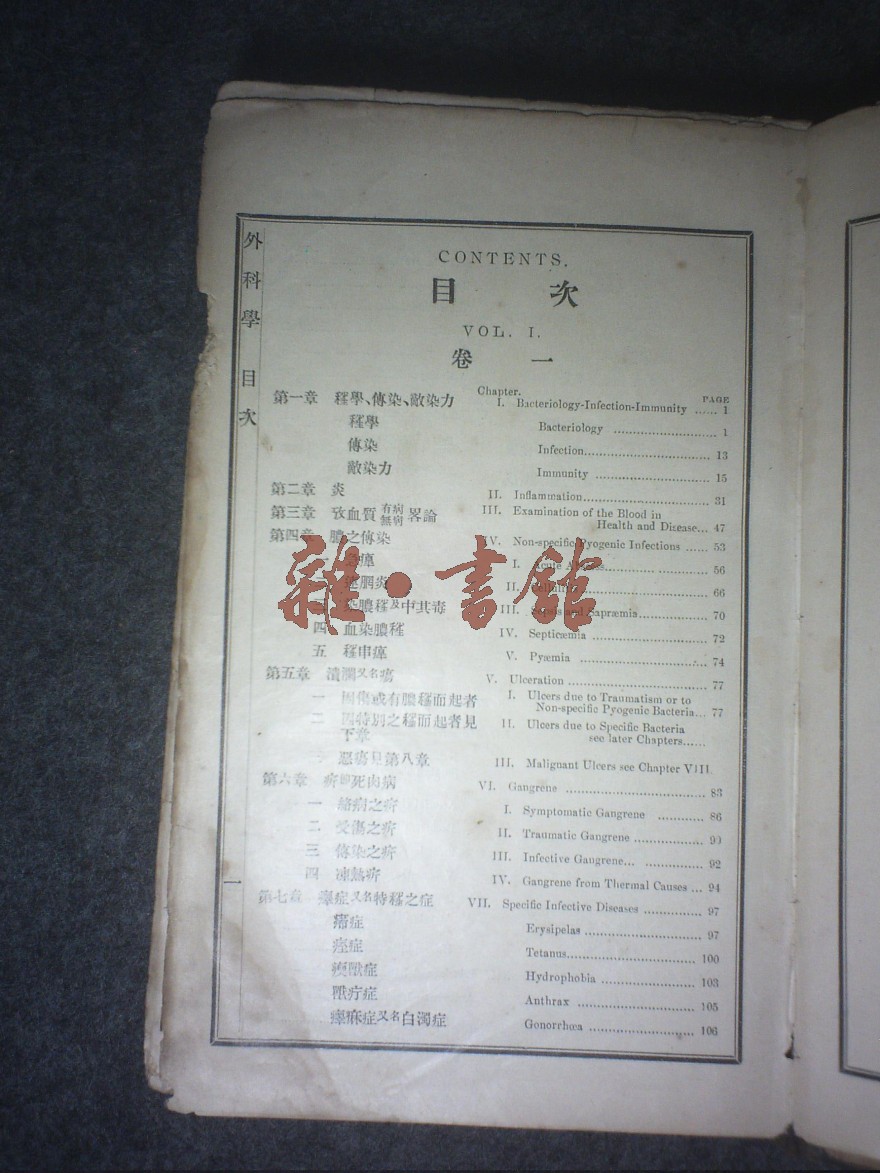 外科學 目次
CONTENTS.
目 次
VOL. I.
卷 一
Chapter. PAGE
第一章 𥻅學、傳染、敵染力 I. Bacteriology-Infection-Immunity ...... 1
學 Bacteriology ........................... 1
傳染 Infection........................... 13
敵染力 Immunity ........................... 15
第二章 炎 II. Inflammation........................... 31
第三章 攷血質有病無病畧論 III. Examination of the Blood in
Health and Dizease... 47
第四章 膿之傳染 IV. Non-specific Pyogenic Infections ...... 53
I. Acute 56
II. 66
染膿 及中其毒 III. and Sapræmia 70
四 血染膿 IV. Septicæmia ........................... 72
五 V. Pyæmia ........................... 74
第五章 潰瀾又名瘍 V. Ulceration ........................... 77
一 因傷或有膿 而起者 I. Ulcers due to Traumatism or to
Non-specific Pyogenic Bacteria... 77
二 因特別之 而起者見
下章 II. Ulcers due to Specific Bacteria
see later Chapters......
三 惡瘍見第八章 III. Malignant Ulcers see Chapter VIII.
第六章 即死肉病 VI. Gangrene ........................... 83
一 病之 I. Symptomatic Gangrene ............ 86
二 受傷之 II. Traumatic Gangrene ............... 90
三 傳染之 III. Infective Gangrene... ............ 92
四 凍熱 IV. Gangrene from Thermal Causes ... 94
第七章 症又名特 之症 VII. Specific Infective Diseases ............... 97
症 Erysipelas ........................... 97
痙症 Tetanus........................... 100
症 Hydrophobia ........................... 103
疔症 Anthrax ........................... 105
症又名白濁症 Gonorrhœa ........................... 106
一
雜·書館